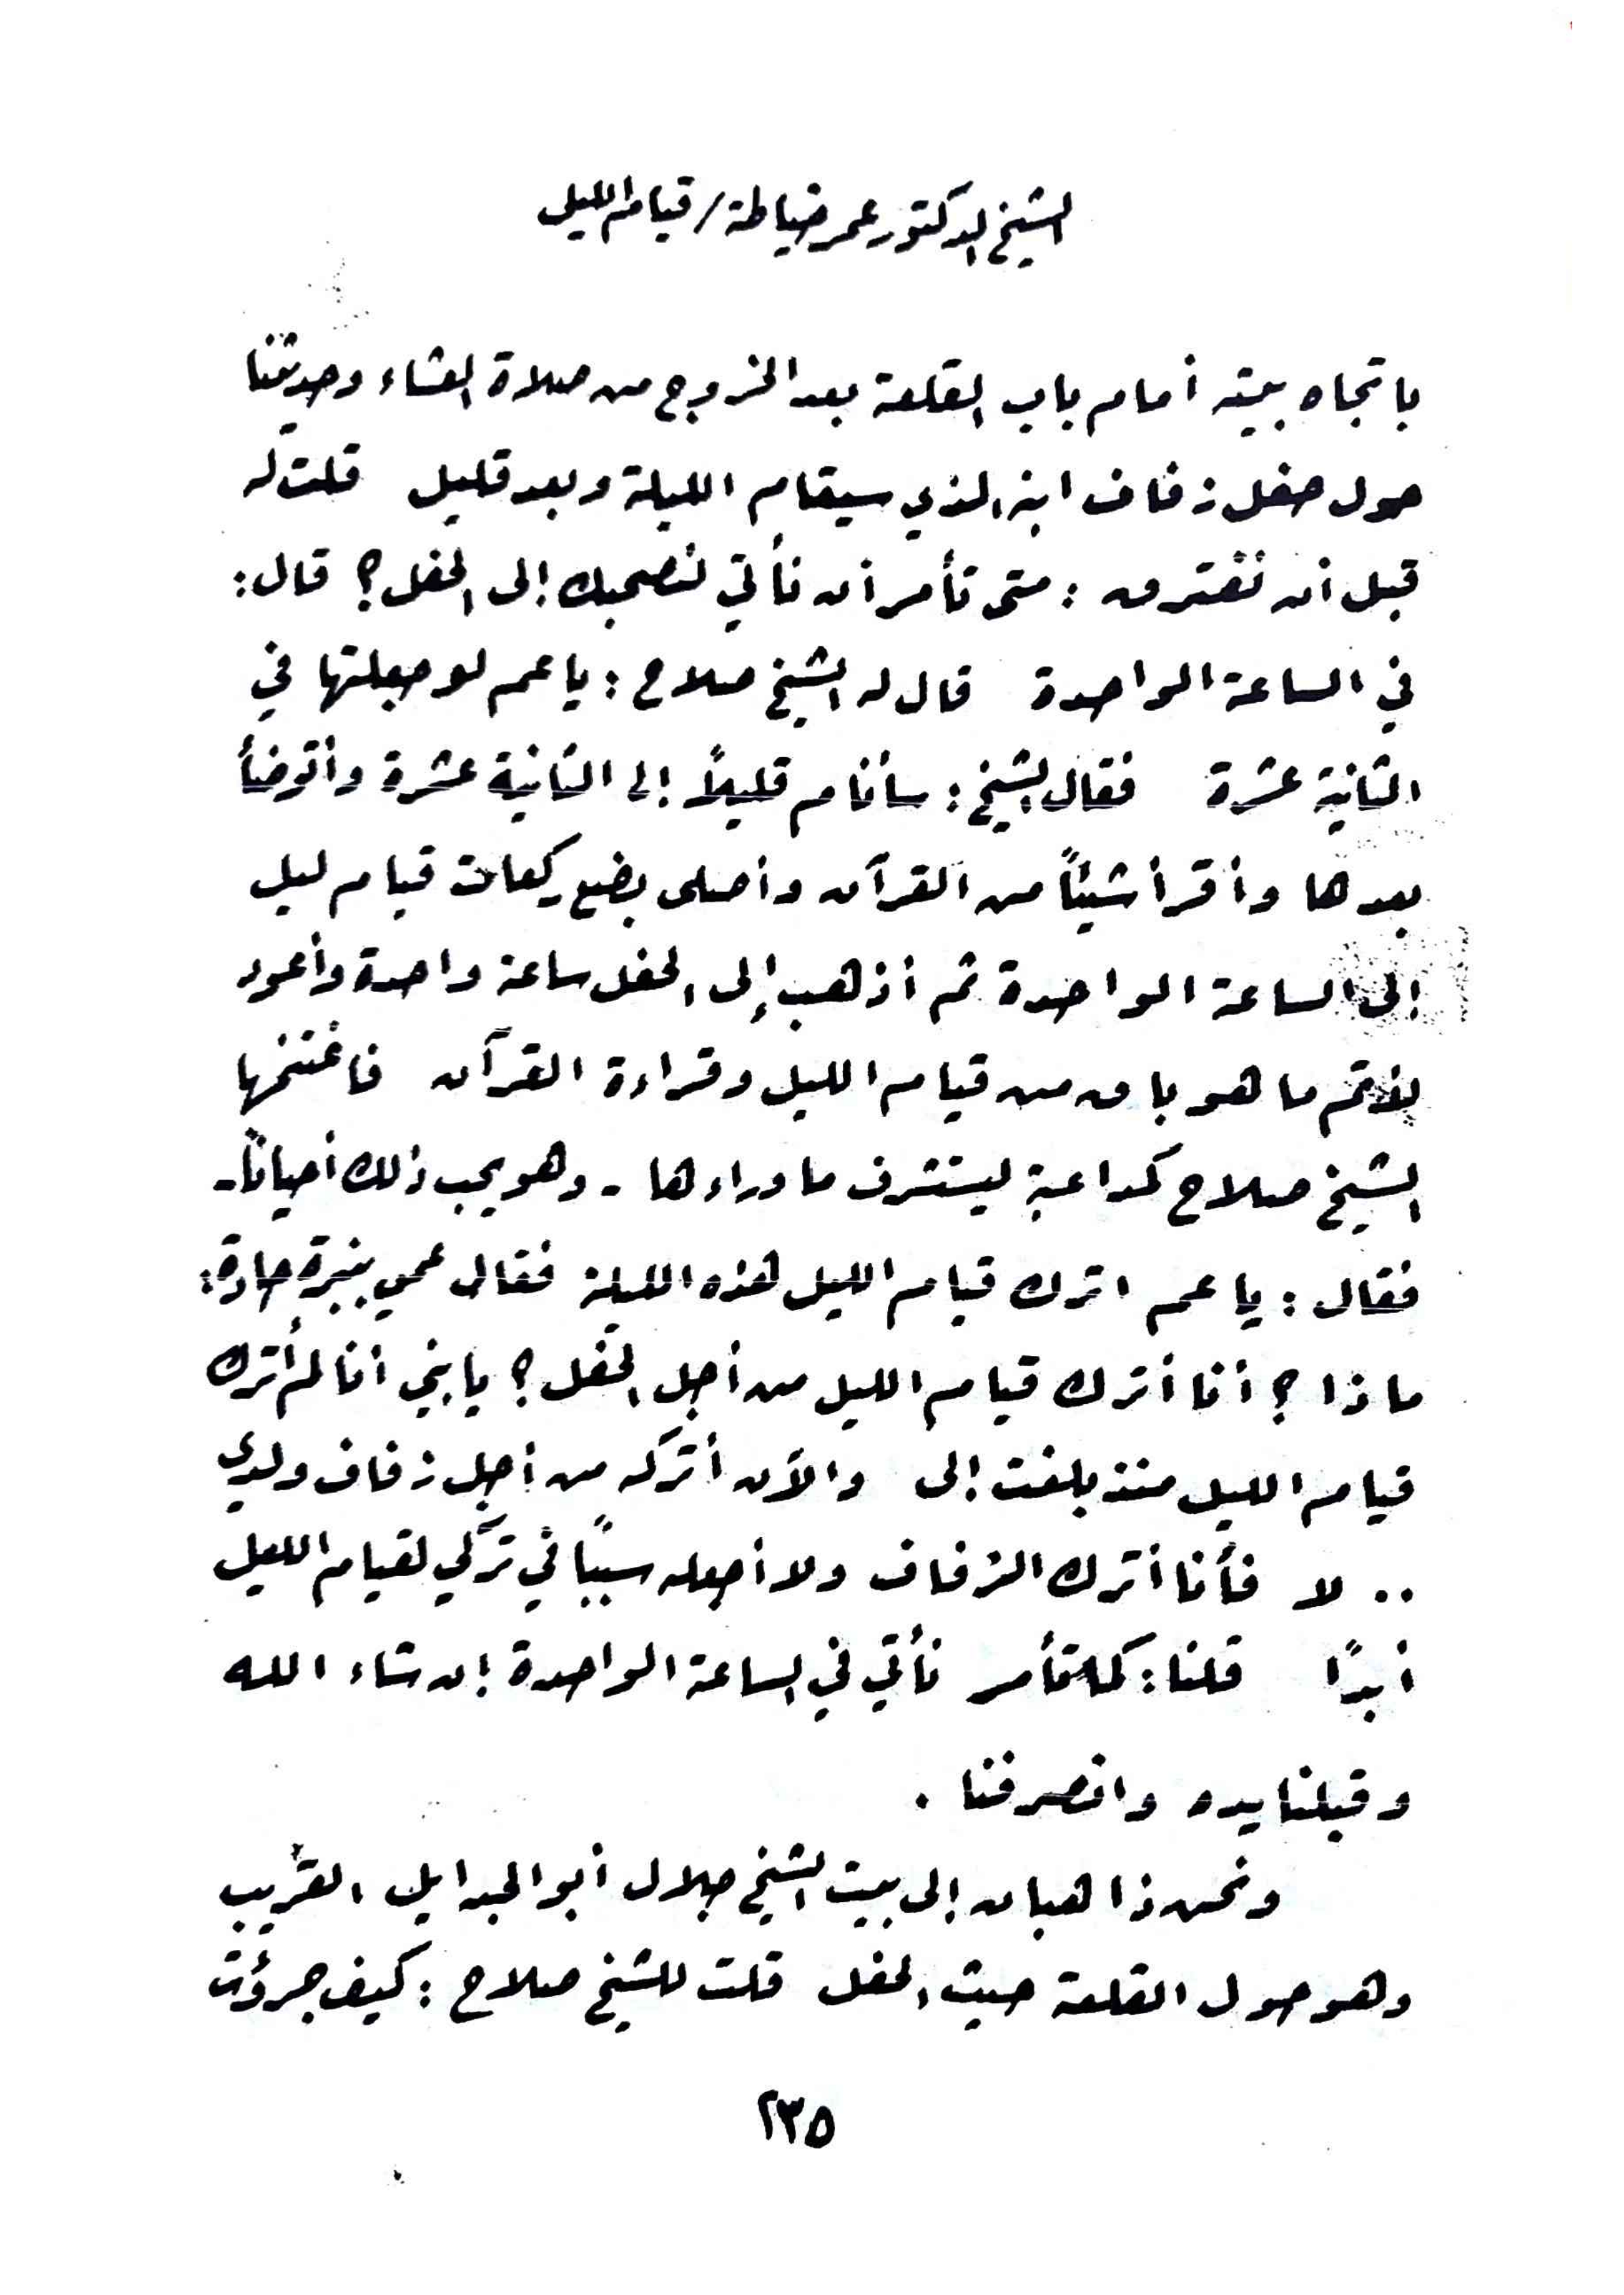 الشيخ الدكتور عمر خياطة / قيام الليل
باتجاه بيته أمام باب القلعة بعد الخروج من صلاة العشاء وحديثنا
حول حفل زفاف ابنه الذي سيقام الليلة وبعد قليل قلت له
قبل أن نفترق : متى تأمر أن نأتي لنصحبك إلى الحفل ؟ قال :
في الساعة الواحدة قال له الشيخ صلاح : يا عم لو جعلتها في
الثانية عشرة فقال الشيخ : سأنام قليلاً إلى الثانية عشرة وأتوضأ
بعدها وأقرأ شيئاً من القرآن وأصلى بضع ركعات قيام ليل
إلى الساعة الواحدة ثم أذهب إلى الحفل ساعة واحدة وأعود
لأتم ما هو باق من قيام الليل وقراءة القرآن فاغتنمها
الشيخ صلاح كمداعبة ليستشرف ما وراءها - وهو يحب ذلك أحياناً -
فقال : يا عم اترك قيام الليل هذه الليلة فقال عمي بنبرة حادة :
ماذا ؟ أنا أترك قيام الليل من أجل الحفل ؟ يا بني أنا لم أترك
قيام الليل منذ بلغت إلى والآن أتركه من أجل زفاف ولدي
.. لا فأنا أترك الزفاف ولا أجعله سببًا في تركي لقيام الليل
أبدًا قلنا : كما تأمر نأتي في الساعة الواحدة إن شاء الله
وقبلنا يده وانصرفنا .
ونحن ذاهبان إلى بيت الشيخ جلال أبو الجدايل القريب
وهو حول القلعة حيث الحفل قلت للشيخ صلاح : كيف جرؤت
٢٣٥